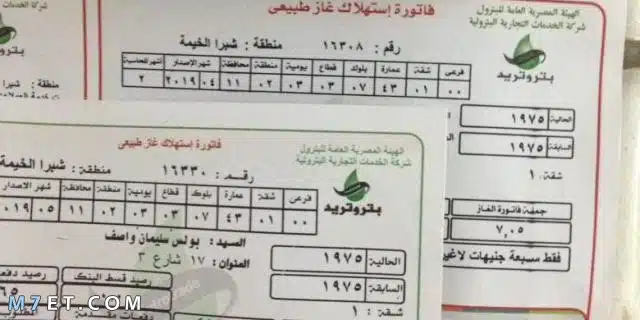 الهيئة المصرية العامة للبترول
شركة الخدمات التجارية البترولية
فاتورة إستهلاك غاز طبيعى
بتروتريد
رقم : ١٦٣٠٨ منطقة : شبرا الخيمة
فرعى شقة عمارة بلوك قطاع يومية منطقة محافظة شهر الإصدار أشهر المحاسبة
٠٠ ٠١ ٤٣ ٠٧ ٠٣ ٠٣ ٠٢ ١١ ٠٤ ٢٠١٩ ٢
الحالية ١٩٧٥
السابقة ١٩٧٥
شقة : ١
جملة فاتورة الغاز
٧,٠٥
فقط سبعة جنيهات لاغير
الهيئة المصرية العامة للبترول
شركة الخدمات التجارية البترولية
فاتورة إستهلاك غاز طبيعى
بتروتريد
رقم : ١٦٣٣٠ منطقة : شبرا الخيمة
فرعى شقة عمارة بلوك قطاع يومية منطقة محافظة شهر الاصدار
٠٠ ٠١ ٤٣ ٠٧ ٠٣ ٠٣ ٠٢ ١١ ٠٥ ٢٠١٩
السيد : بولس سليمان واصف
العنوان : ١٧ شارع ٣
الحالية ١٩٧٥
السابقة ١٩٧٥
شقة : ١
رصيد قسط البنك
دفعات مقدمة
M7ET.COM